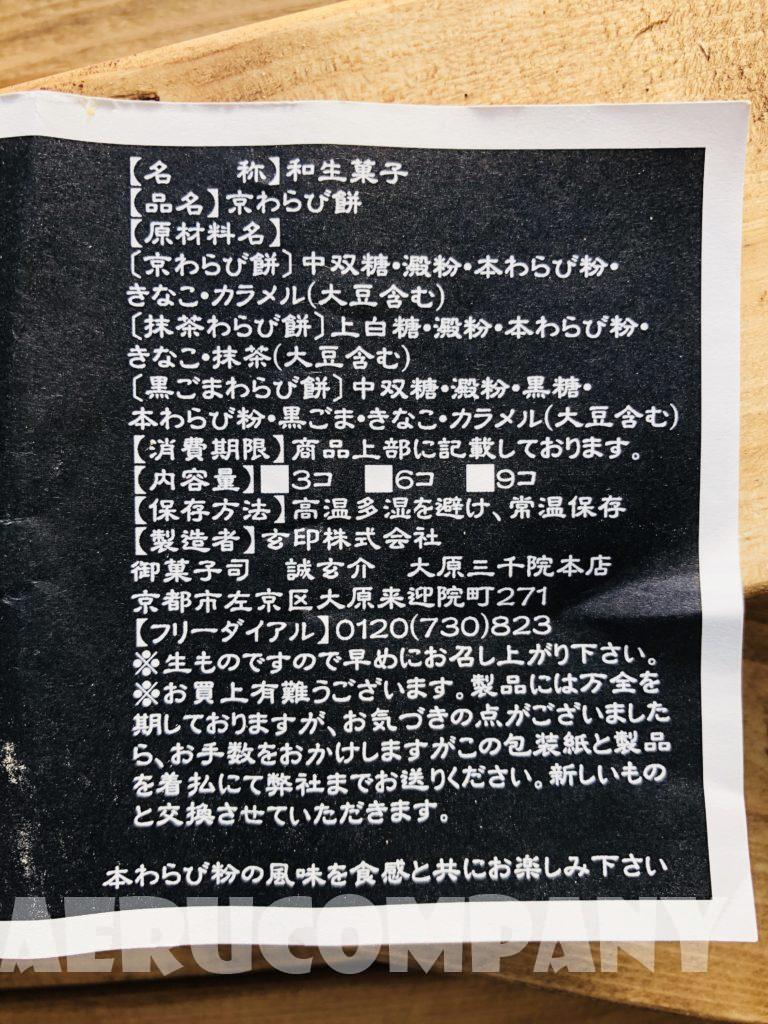 【名　　称】和生菓子
【品名】京わらび餅
【原材料名】
〔京わらび餅〕中双糖・澱粉・本わらび粉・
きなこ・カラメル(大豆含む)
〔抹茶わらび餅〕上白糖・澱粉・本わらび粉・
きなこ・抹茶(大豆含む)
〔黒ごまわらび餅〕中双糖・澱粉・黒糖・
本わらび粉・黒ごま・きなこ・カラメル(大豆含む)
【消費期限】商品上部に記載しております。
【内容量】■3コ　■6コ　■9コ
【保存方法】高温多湿を避け、常温保存
【製造者】玄印株式会社
御菓子司　誠玄介　大原三千院本店
京都市左京区大原来迎院町271
【フリーダイアル】0120(730)823
※生ものですので早めにお召し上がり下さい。
※お買上有難うございます。製品には万全を
期しておりますが、お気づきの点がございました
ら、お手数をおかけしますがこの包装紙と製品
を着払にて弊社までお送りください。新しいもの
と交換させていただきます。
本わらび粉の風味を食感と共にお楽しみ下さい
AERUCOMPANY